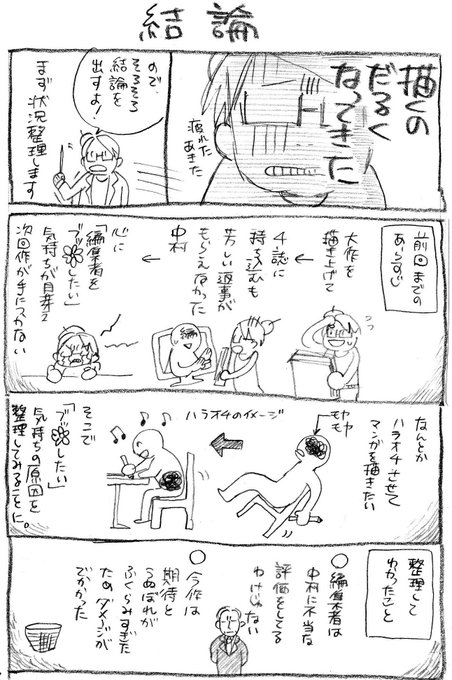 結論
描くの
だるく
なってきた
疲れた
あきた
ので、
そろそろ
結論を
出すよ!
まず状況整理します
前回までの
あらすじ
大作を
描き上げて
4誌に
持ち込むも
芳しい返事が
もらえなかった
中村
心に
「編集者を
ブッ❀したい」
気持ちが芽生え
次回作が手につかない
なんとか
ハラオチさせて
マンガを描きたい
モヤ
モヤ
ハラオチのイメージ
そこで
「ブッ❀したい」
気持ちの原因を
整理してみることに。
整理して
わかったこと
○編集者は
中村に不当な
評価をしてる
わけじゃない
○今作は
期待と
うぬぼれが
ふくらみすぎた
ためダメージが
でかかった